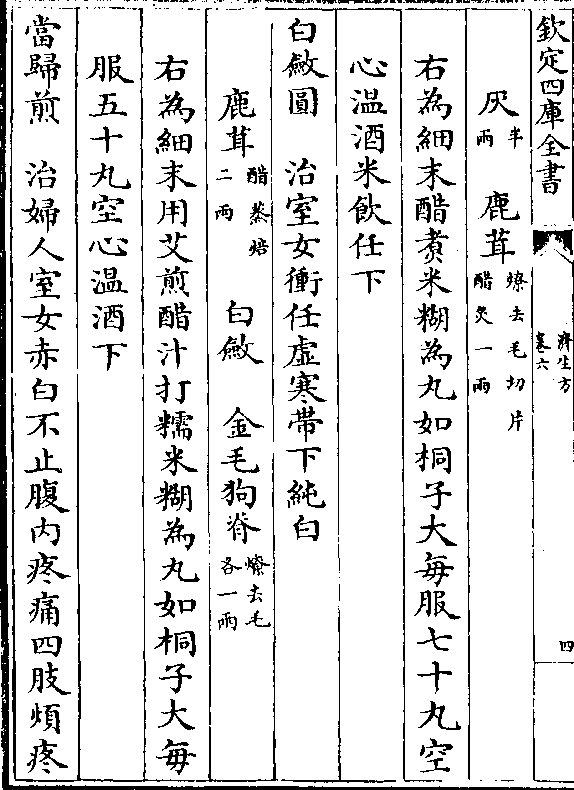 欽定四庫全書
濟生方
卷六
四
灰半兩　鹿茸燎去毛切片醋炙一兩
右為細末醋煑米糊為丸如桐子大每服七十丸空
心温酒米飲任下
白斂圓　治室女衝任虚寒帶下純白
鹿茸醋蒸焙二兩　白斂　金毛狗脊燎去毛各一兩
右為細末用艾煎醋汁打糯米糊為丸如桐子大每
服五十丸空心温酒下
當歸煎　治婦人室女赤白不止腹内疼痛四肢煩疼